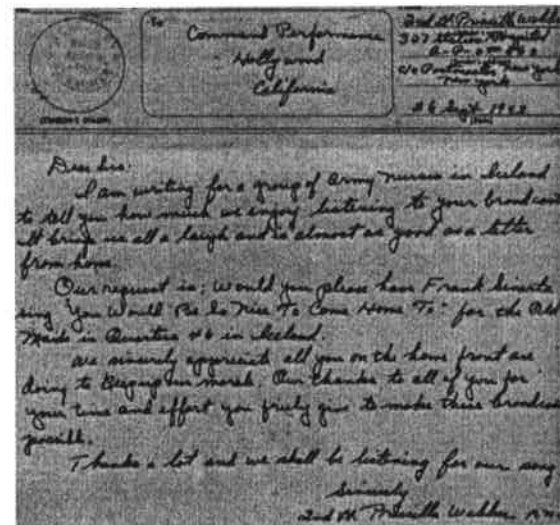 To
Command Performance
Hollywood
California
2nd Lt. Priscilla
307 Station Hospital
A-P-O
c/o Postmaster New York
New York
26 Sept.
Dear Sir:
I am writing for a group of Army Nurses in Iceland
to tell you how much we enjoy listening to your broadcast
It brings us all a laugh and is almost as good as a letter
from home.
Our request is: Would you please have Frank Sinatra
sing "You Would Be So Nice To Come Home To" for the
Maids in Quarters #6 in Iceland.
We sincerely all you on the home front are
doing to our morale. Our thanks to all of you for
your time and effort you freely give to make these broadcasts
possible.
Thanks a lot and we shall be listening for our song
Sincerely
2nd Lt. Priscilla